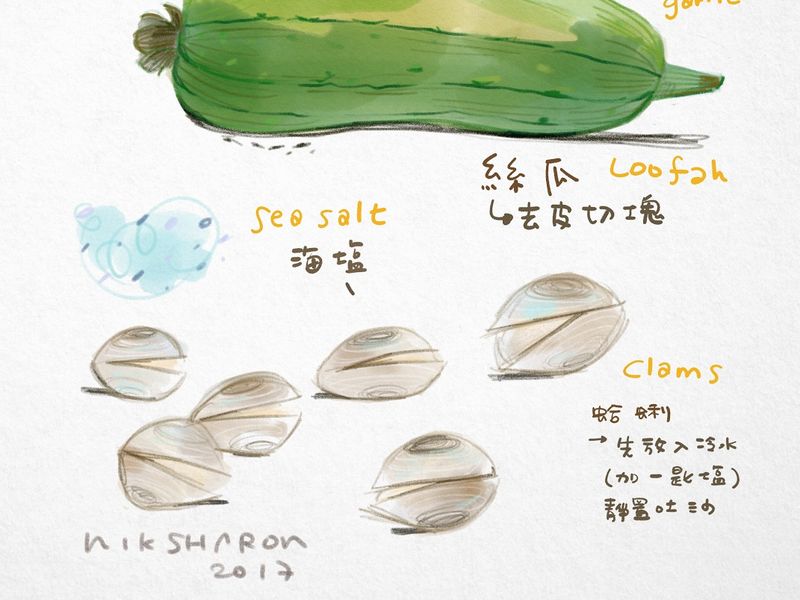 garlic
絲瓜 Loofah
↳去皮切塊
sea salt
海塩
clams
蛤蜊
→先放入冷水
(加一匙塩)
靜置吐沙
NIKSHARON
2017